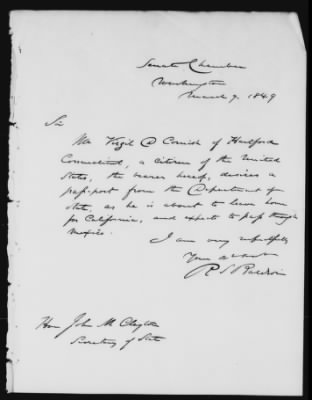 Senate Chamber
Washington
March 7. 1849
Sir
Mr Virgil Cornish of Hartford
Connecticut, a citizen of the United
States, the bearer hereof, desires a
passport from the Department of
State, as he is about to leave home
for California, and expects to pass through
Mexico.
I am very respectfully
Your obt servt
R S Baldwin
Hon John M Clayton
Secretary of State